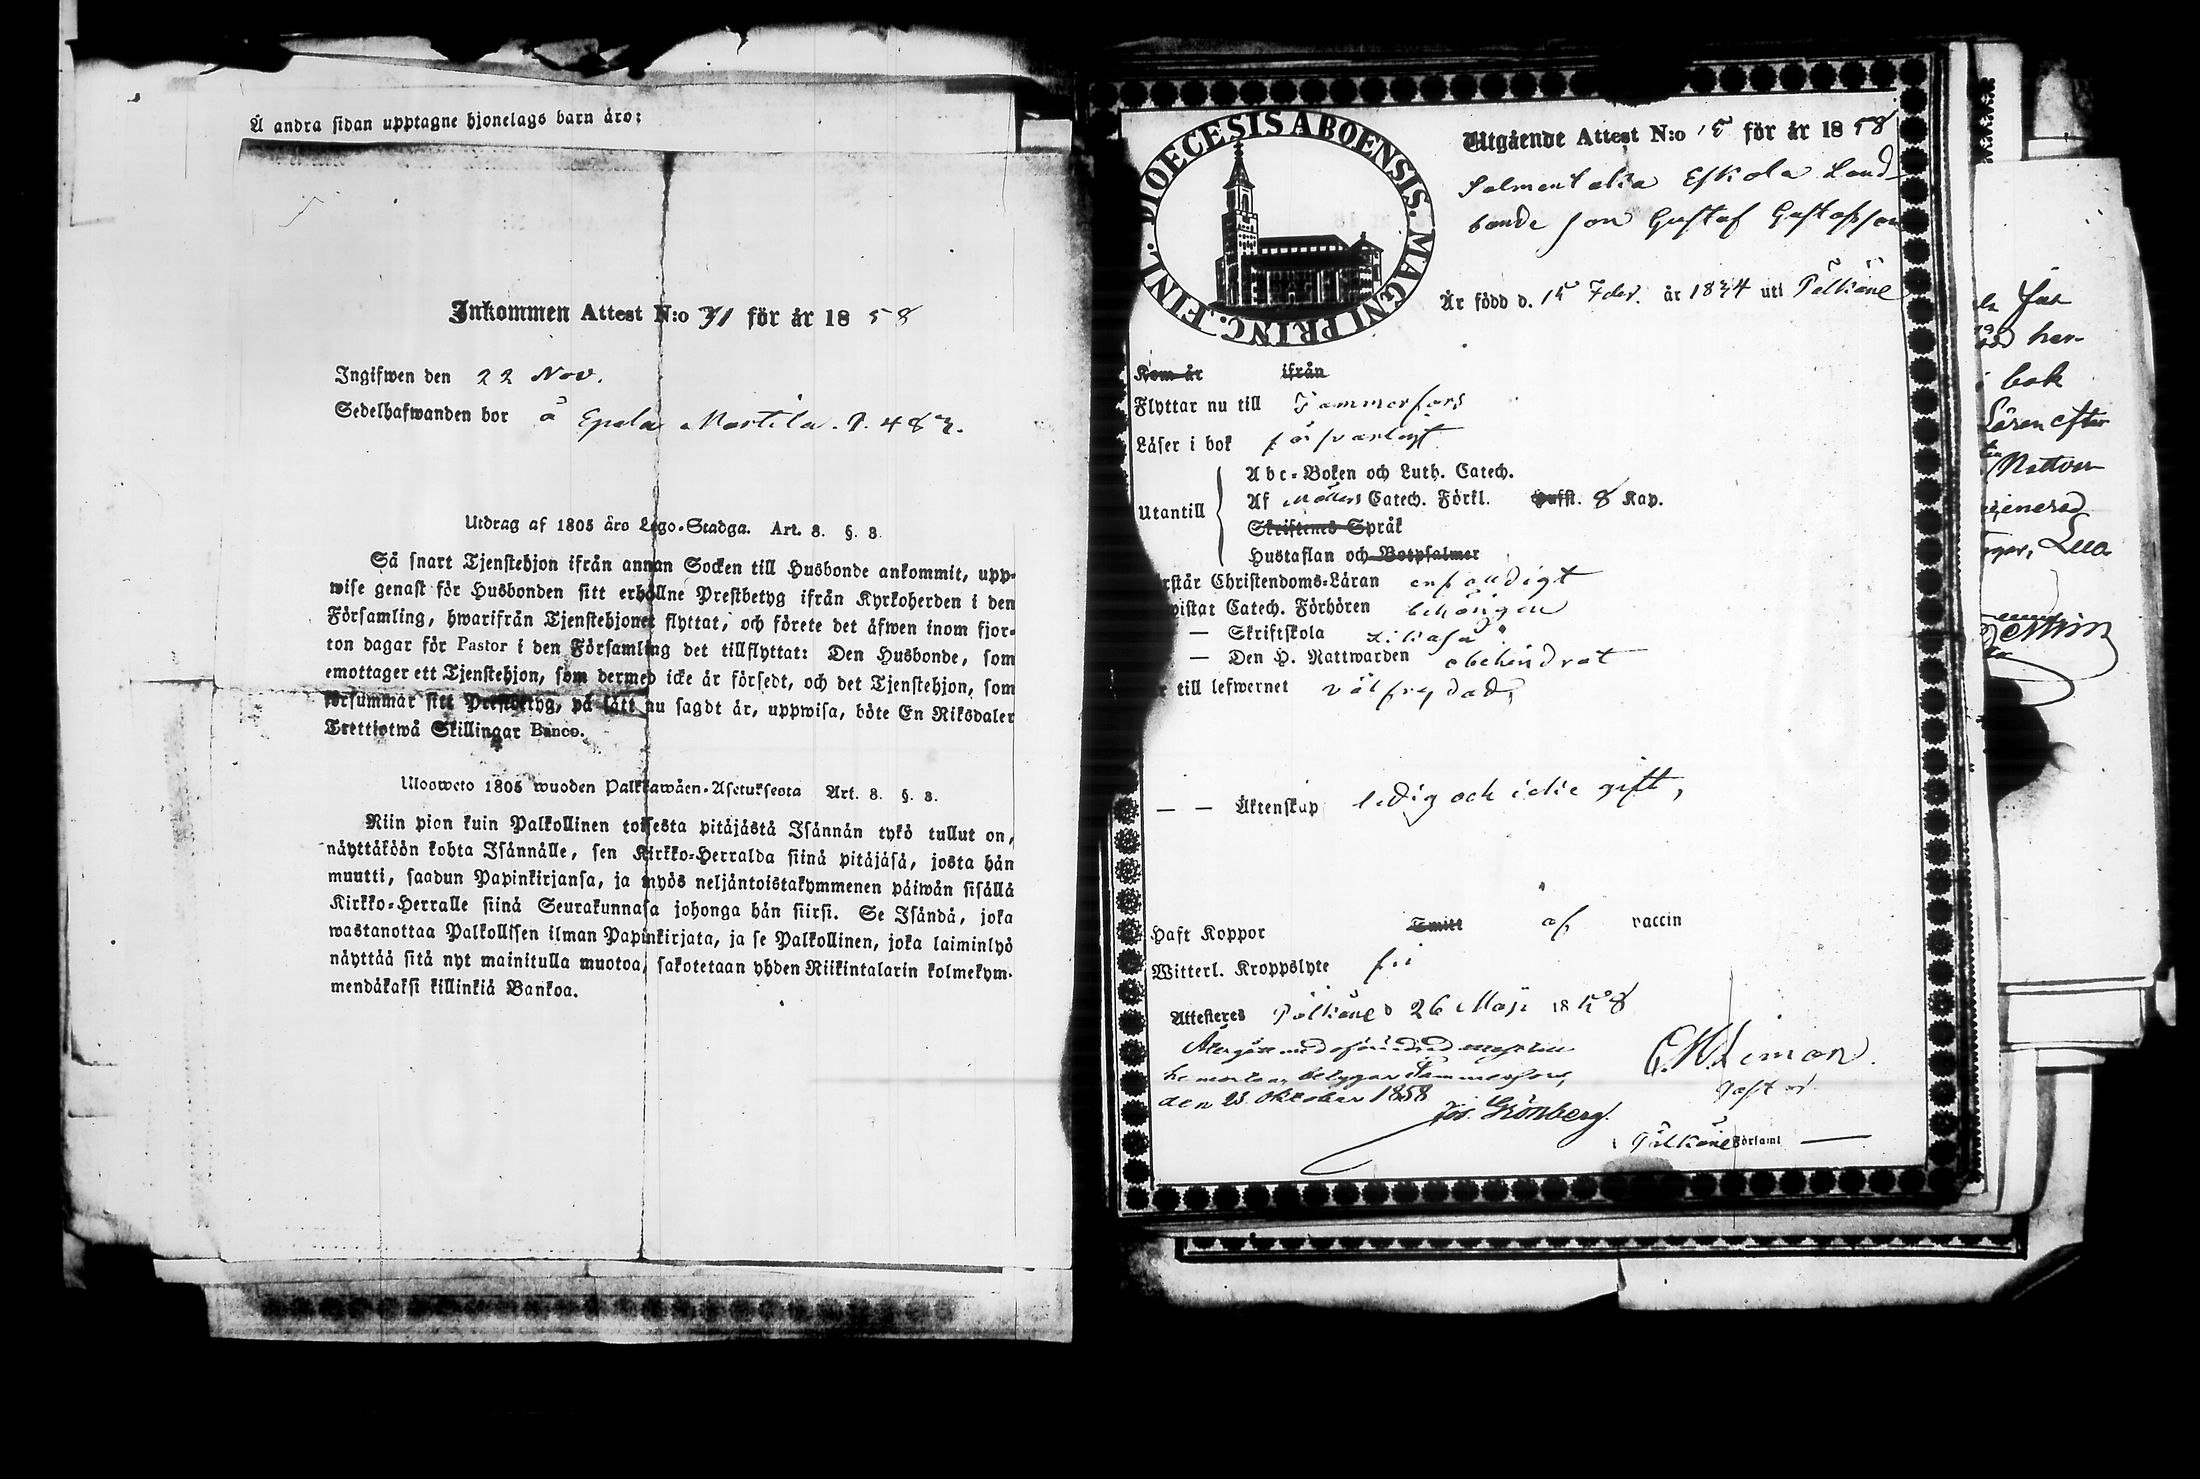 Å andra sidan upptagne hjonelags barn äro:
Inkommen Attest N:o 31 för år 1858
Ingifwen den 22 Nov.
Sedelhafwanden bor å Epila Martila. P. 483.
Utdrag af 1805 års Lego-Stadga. Art. 8. §. 3
Så snart Tjenstehjon ifrån annan Socken till Husbonde ankommit, upp-
wise genast för Husbonden sitt erhållne Prestbetyg ifrån Kyrkoherden i den
Församling, hwarifrån Tjenstehjonet flyttat, och förete det äfwen inom fjor-
ton dagar för Pastor i den Församling det tillflyttat: Den Husbonde, som
emottager ett Tjenstehjon, som dermed icke är försedt, och det Tjenstehjon, som
försummar sitt Prestbetyg, på sätt nu sagdt är, uppwisa, böte En Riksdaler
Trettiotwå Skillingar Banco.
Ulosweto 1805 wuoden Palkkawäen-Asetuksesta Art. 8. §. 3.
Niin pian kuin Palkollinen toisesta pitäjästä Isännän tykö tullut on,
näyttäköön kohta Isännälle, sen Kirkko-Herralda siinä pitäjäsä, josta hän
muutti, saadun Papinkirjansa, ja myös neljäntoistakymmenen päiwän sisällä
Kirkko-Herralle siinä Seurakunnasa johonga hän siirsi. Se Isändä, joka
wastanottaa Palkollisen ilman Papinkirjata, ja se Palkollinen, joka laiminlyö
näyttää sitä nyt mainitulla muotoa, sakotetaan yhden Riikintalarin kolmekym-
mendäkaksi killinkiä Bankoa.
DIOECESIS ABOENSIS. MAGNI PRINC. FINL.
Utgående Attest N:o 15 för år 1858
Salmentaka Eskola Land
bonde son Gustaf Gustafsson
Är född d. 15 7ber. år 1834 uti Pälkäne
Kom år ifrån
Flyttar nu till Tammerfors
Läser i bok försvarligt
Utantill
Abc-Boken och Luth. Catech.
Af Möllers Catech. Förkl. Hufst. 8 Kap.
Skriftenes Språk
Hustaflan och Botpsalmer
rstår Christendoms-Läran enfaldigt
wistat Catech. Förhören behörigen
— Skriftskola likaså
— Den H. Nattwarden obehindrat
r till lefwernet välfrejdad,
— — Äktenskap ledig och icke gift,
Haft Koppor Smitt af vaccin
Witterl. Kroppslyte fri
Attesteres Pälkäne d 26 Maji 1858
Återgår med oförändrad
betygar Tammerfors,
den 23 Oktober 1858
Jos. Grönberg.
i Pälkäne Församl
bok
Läsen efter
Nattvar